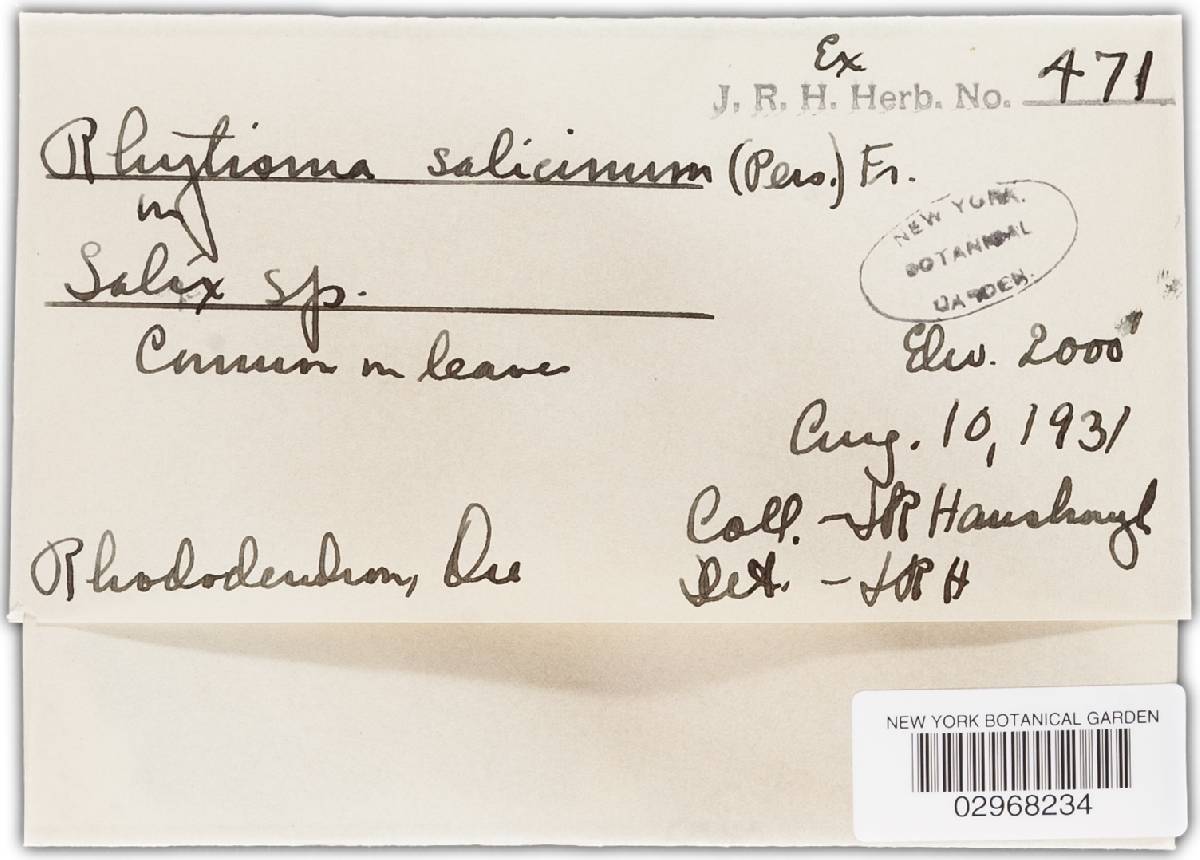 Ex
J. R. H. Herb. No. 471
Rhytisma salicinum (Pers.) Fr.
on
Salix sp.
NEW YORK
BOTANICAL
GARDEN.
Common on leaves
Elev. 2000'
Aug. 10, 1931
Coll. - JR Hansbrough
Rhododendron, Ore
Det. - JRH
NEW YORK BOTANICAL GARDEN
02968234